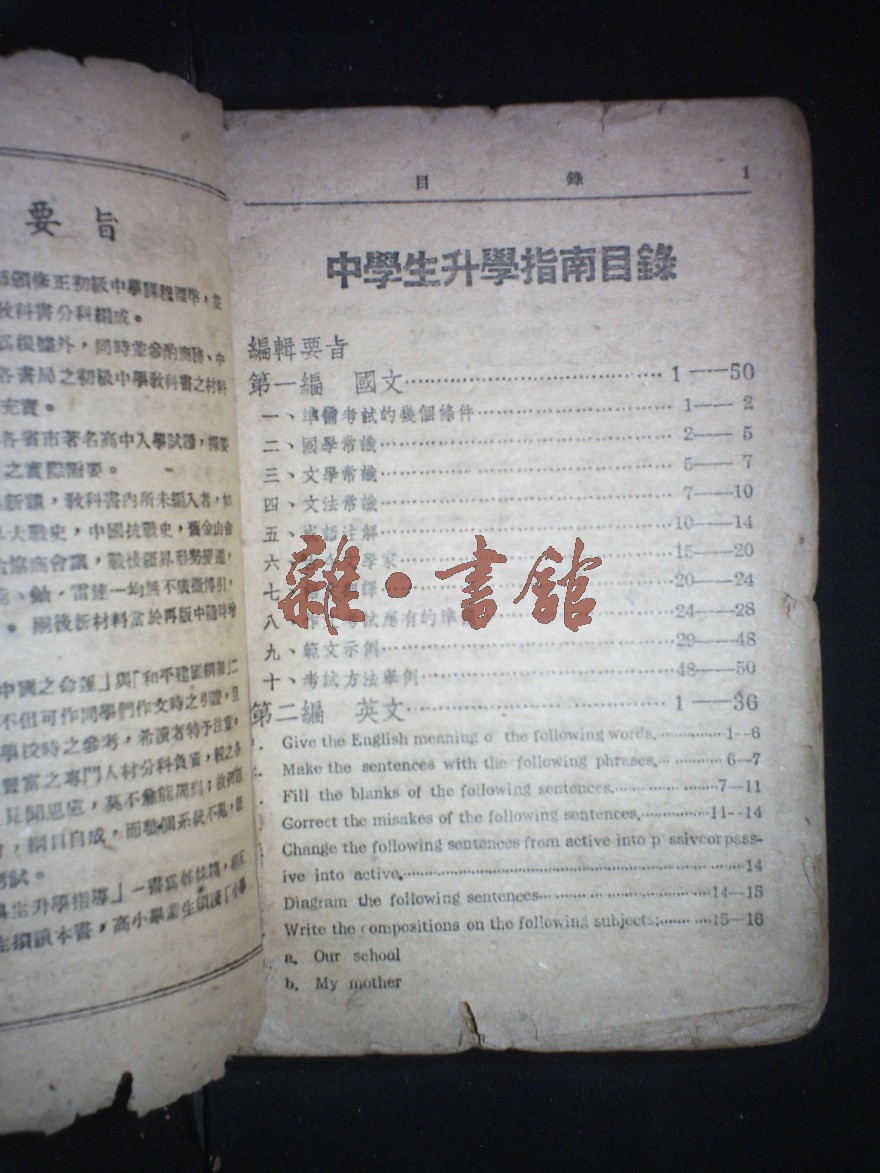 要旨
頒修正初級中學課程標準，並
教科書分科編成。
爲根據外，同時並參酌商務、中
各書局之初級中學教科書之材料
充實。
各省市著名高中入學試題，擇要
之實際需要。
新穎，教科書內所未編入者，如
大戰史，中國抗戰史，舊金山會
協商會議，戰後疆界形勢變遷，
鈾，雷達一均無不廣徵博引，
。嗣後新材料當於再版中隨時增
中國之命運」與「和平建國綱領」二
不但可作同學們作文時之引證，且
學校時之參考，希讀者特予注意。
豐富之專門人材分科負責，較之各
見聞思慮，莫不兼能周到；故
綱目自成，而整個系統不亂，
考試。
生升學指導」一書爲姊妹篇，
生須讀本書，高小畢業生須讀「小學
目錄 1
中學生升學指南目錄
編輯要旨
第一編 國文……1——50
一、準備考試的幾個條件……1——2
二、國學常識……2——5
三、文學常識……5——7
四、文法常識……7——10
五、註解……10——14
六、學家……15——20
七、……20——24
八、作文考試應有的準……24——28
九、範文示例……29——48
十、考試方法舉例……48——50
第二編 英文……1——36
Give the English meaning o the following words.……1—6
Make the sentences with the following phrases.……6—7
Fill the blanks of the following sentences.……7—11
Correct the misakes of the following sentences.……11—14
Change the following sentences from active into p ssive or pass-
ive into active.……14
Diagram the following sentences……14—15
Write the compositions on the following subjects:……15—16
a. Our school
b. My mother
雜·書館